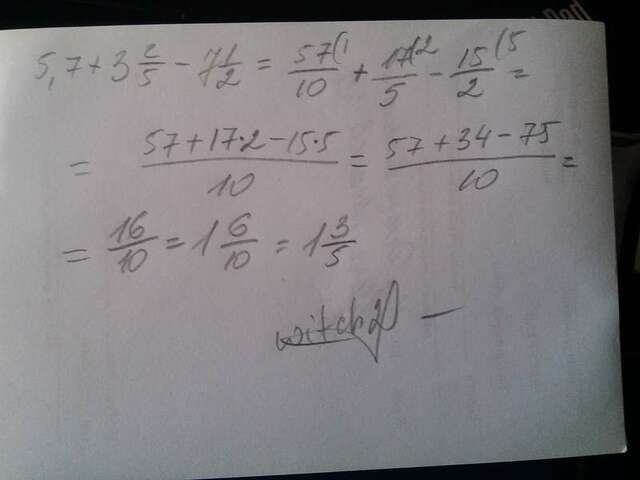 5,7 + 3 2/5 − 7 1/2 = 57(1/10 + 17(2/5 − 15(5/2 =
= 57+17·2−15·5/10 = 57+34−75/10 =
= 16/10 = 1 6/10 = 1 3/5